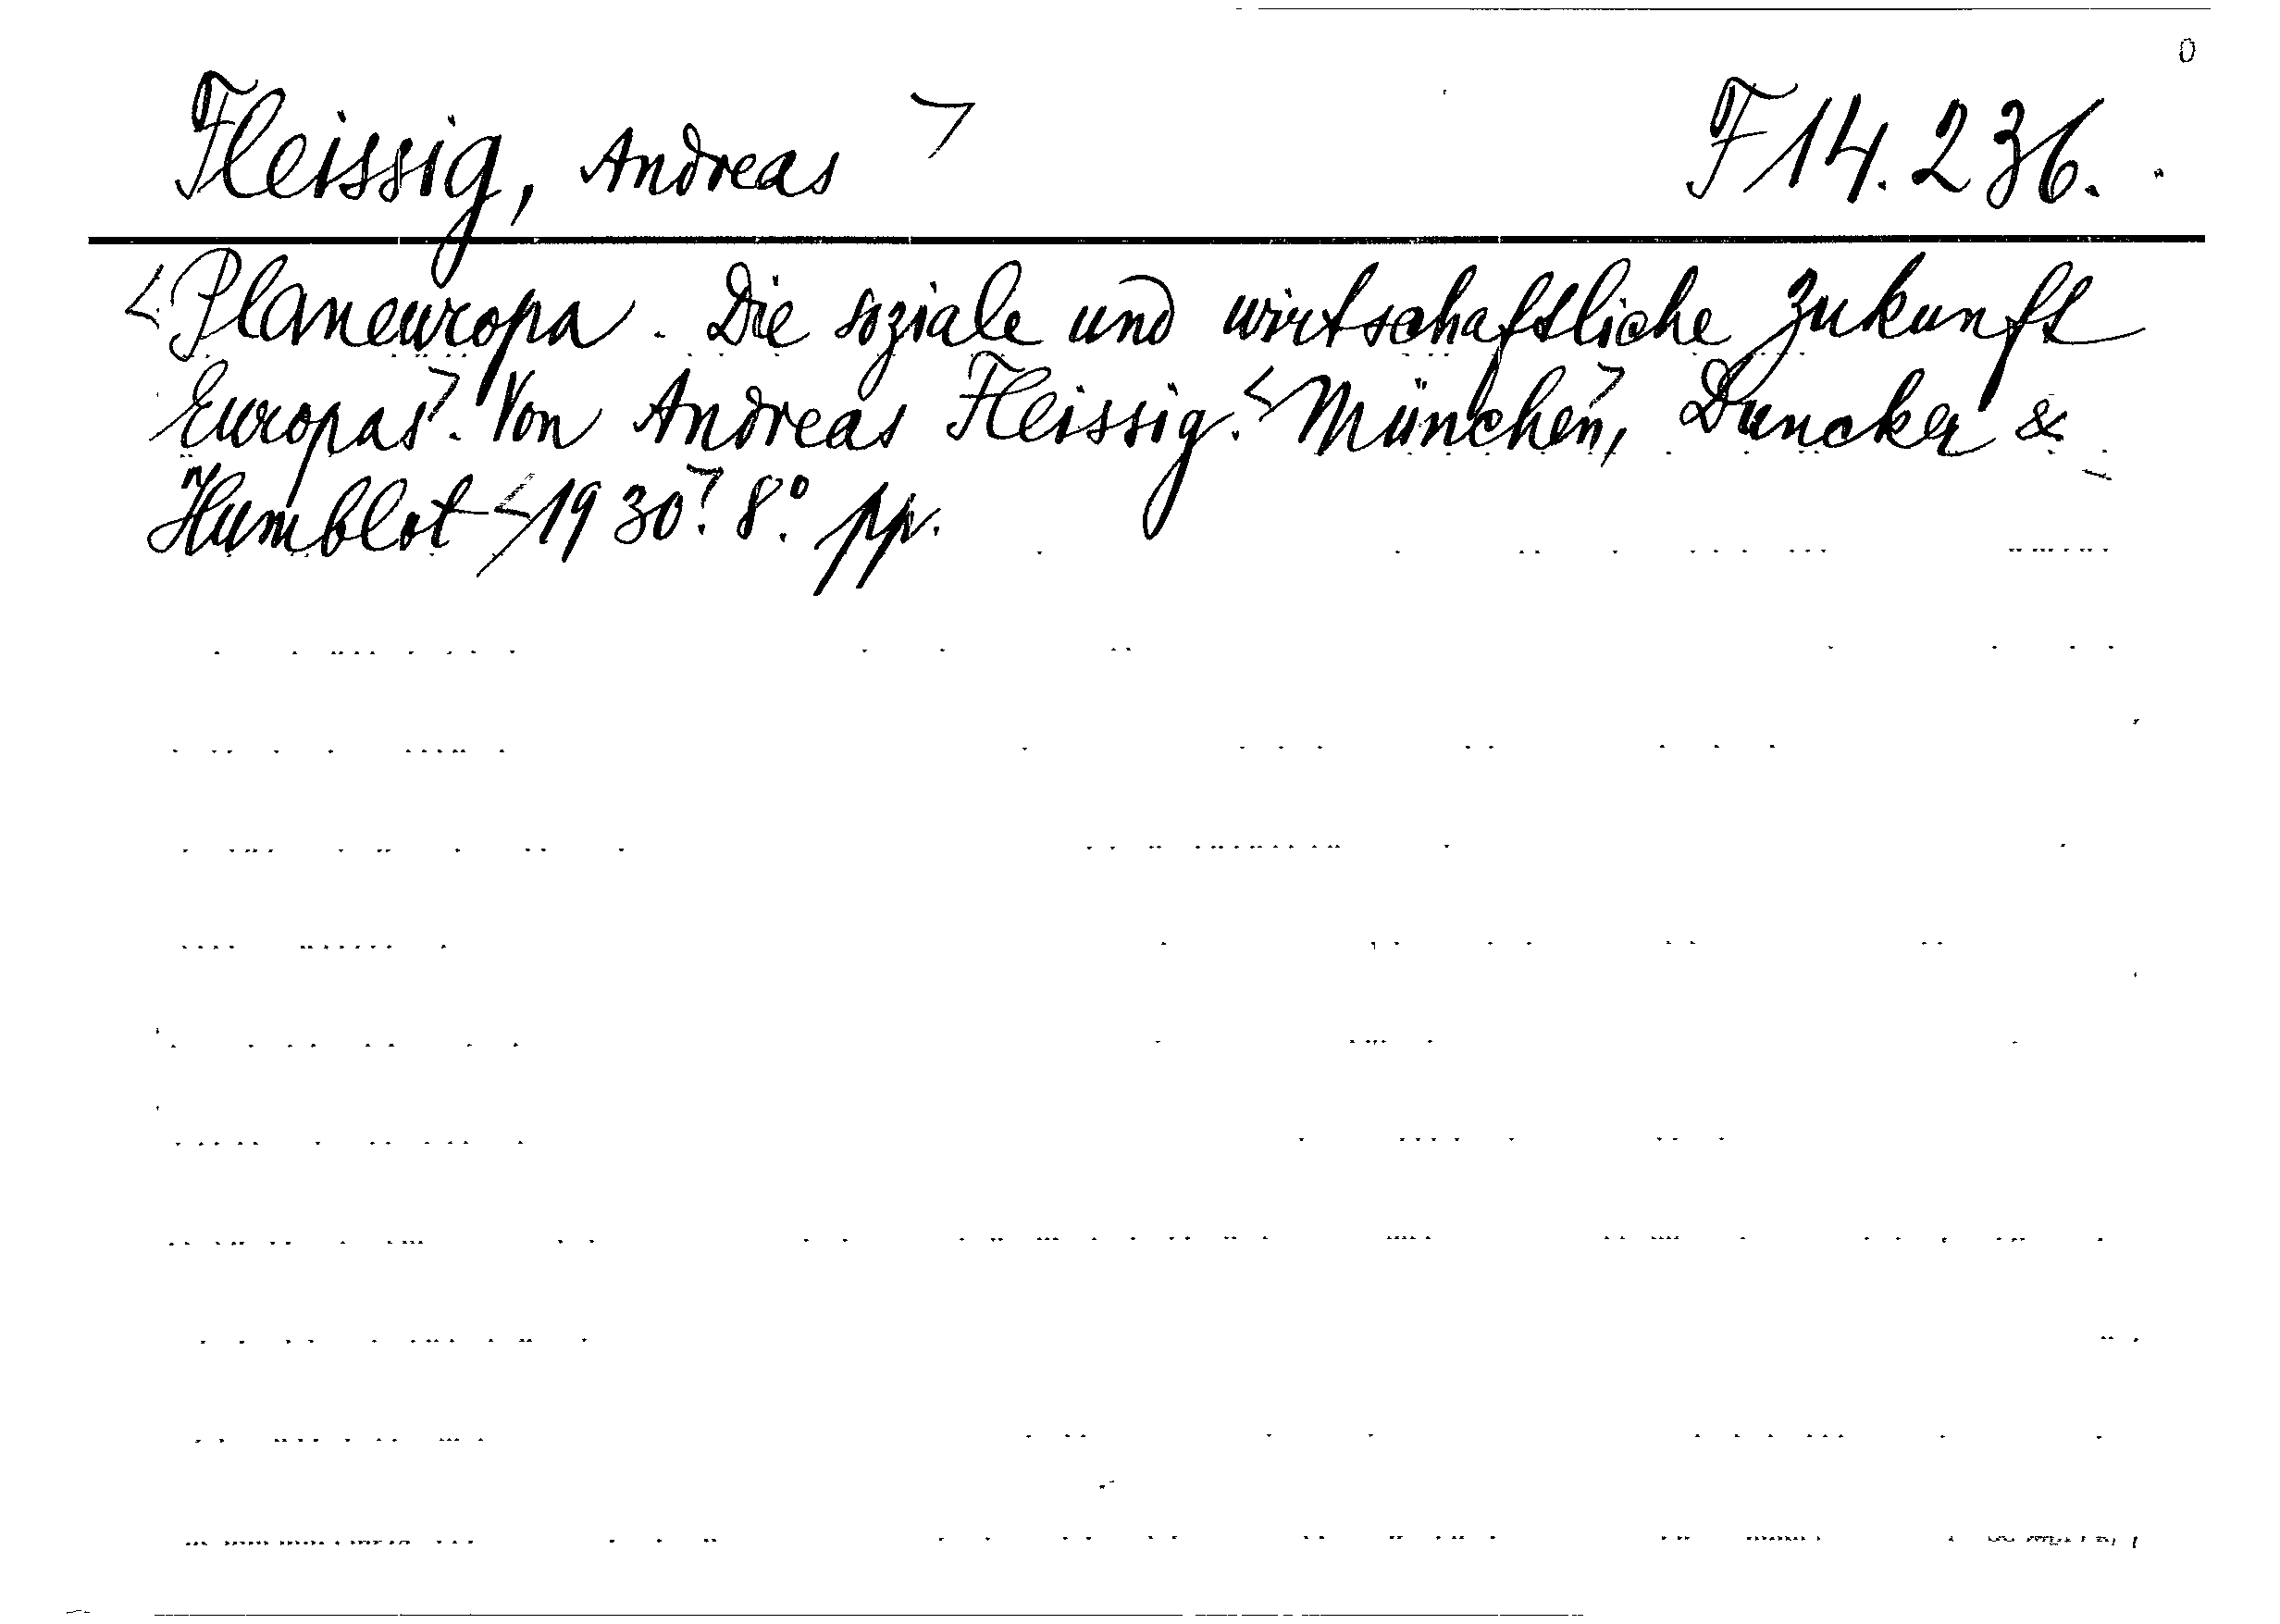 Fleissig, Andreas > F 14.236.
<Planeuropa. Die soziale und wirtschaftliche Zukunft
Europas>. Von Andreas Fleissig. <München>, Duncker &
Humblot <1930>. 8°. pp.